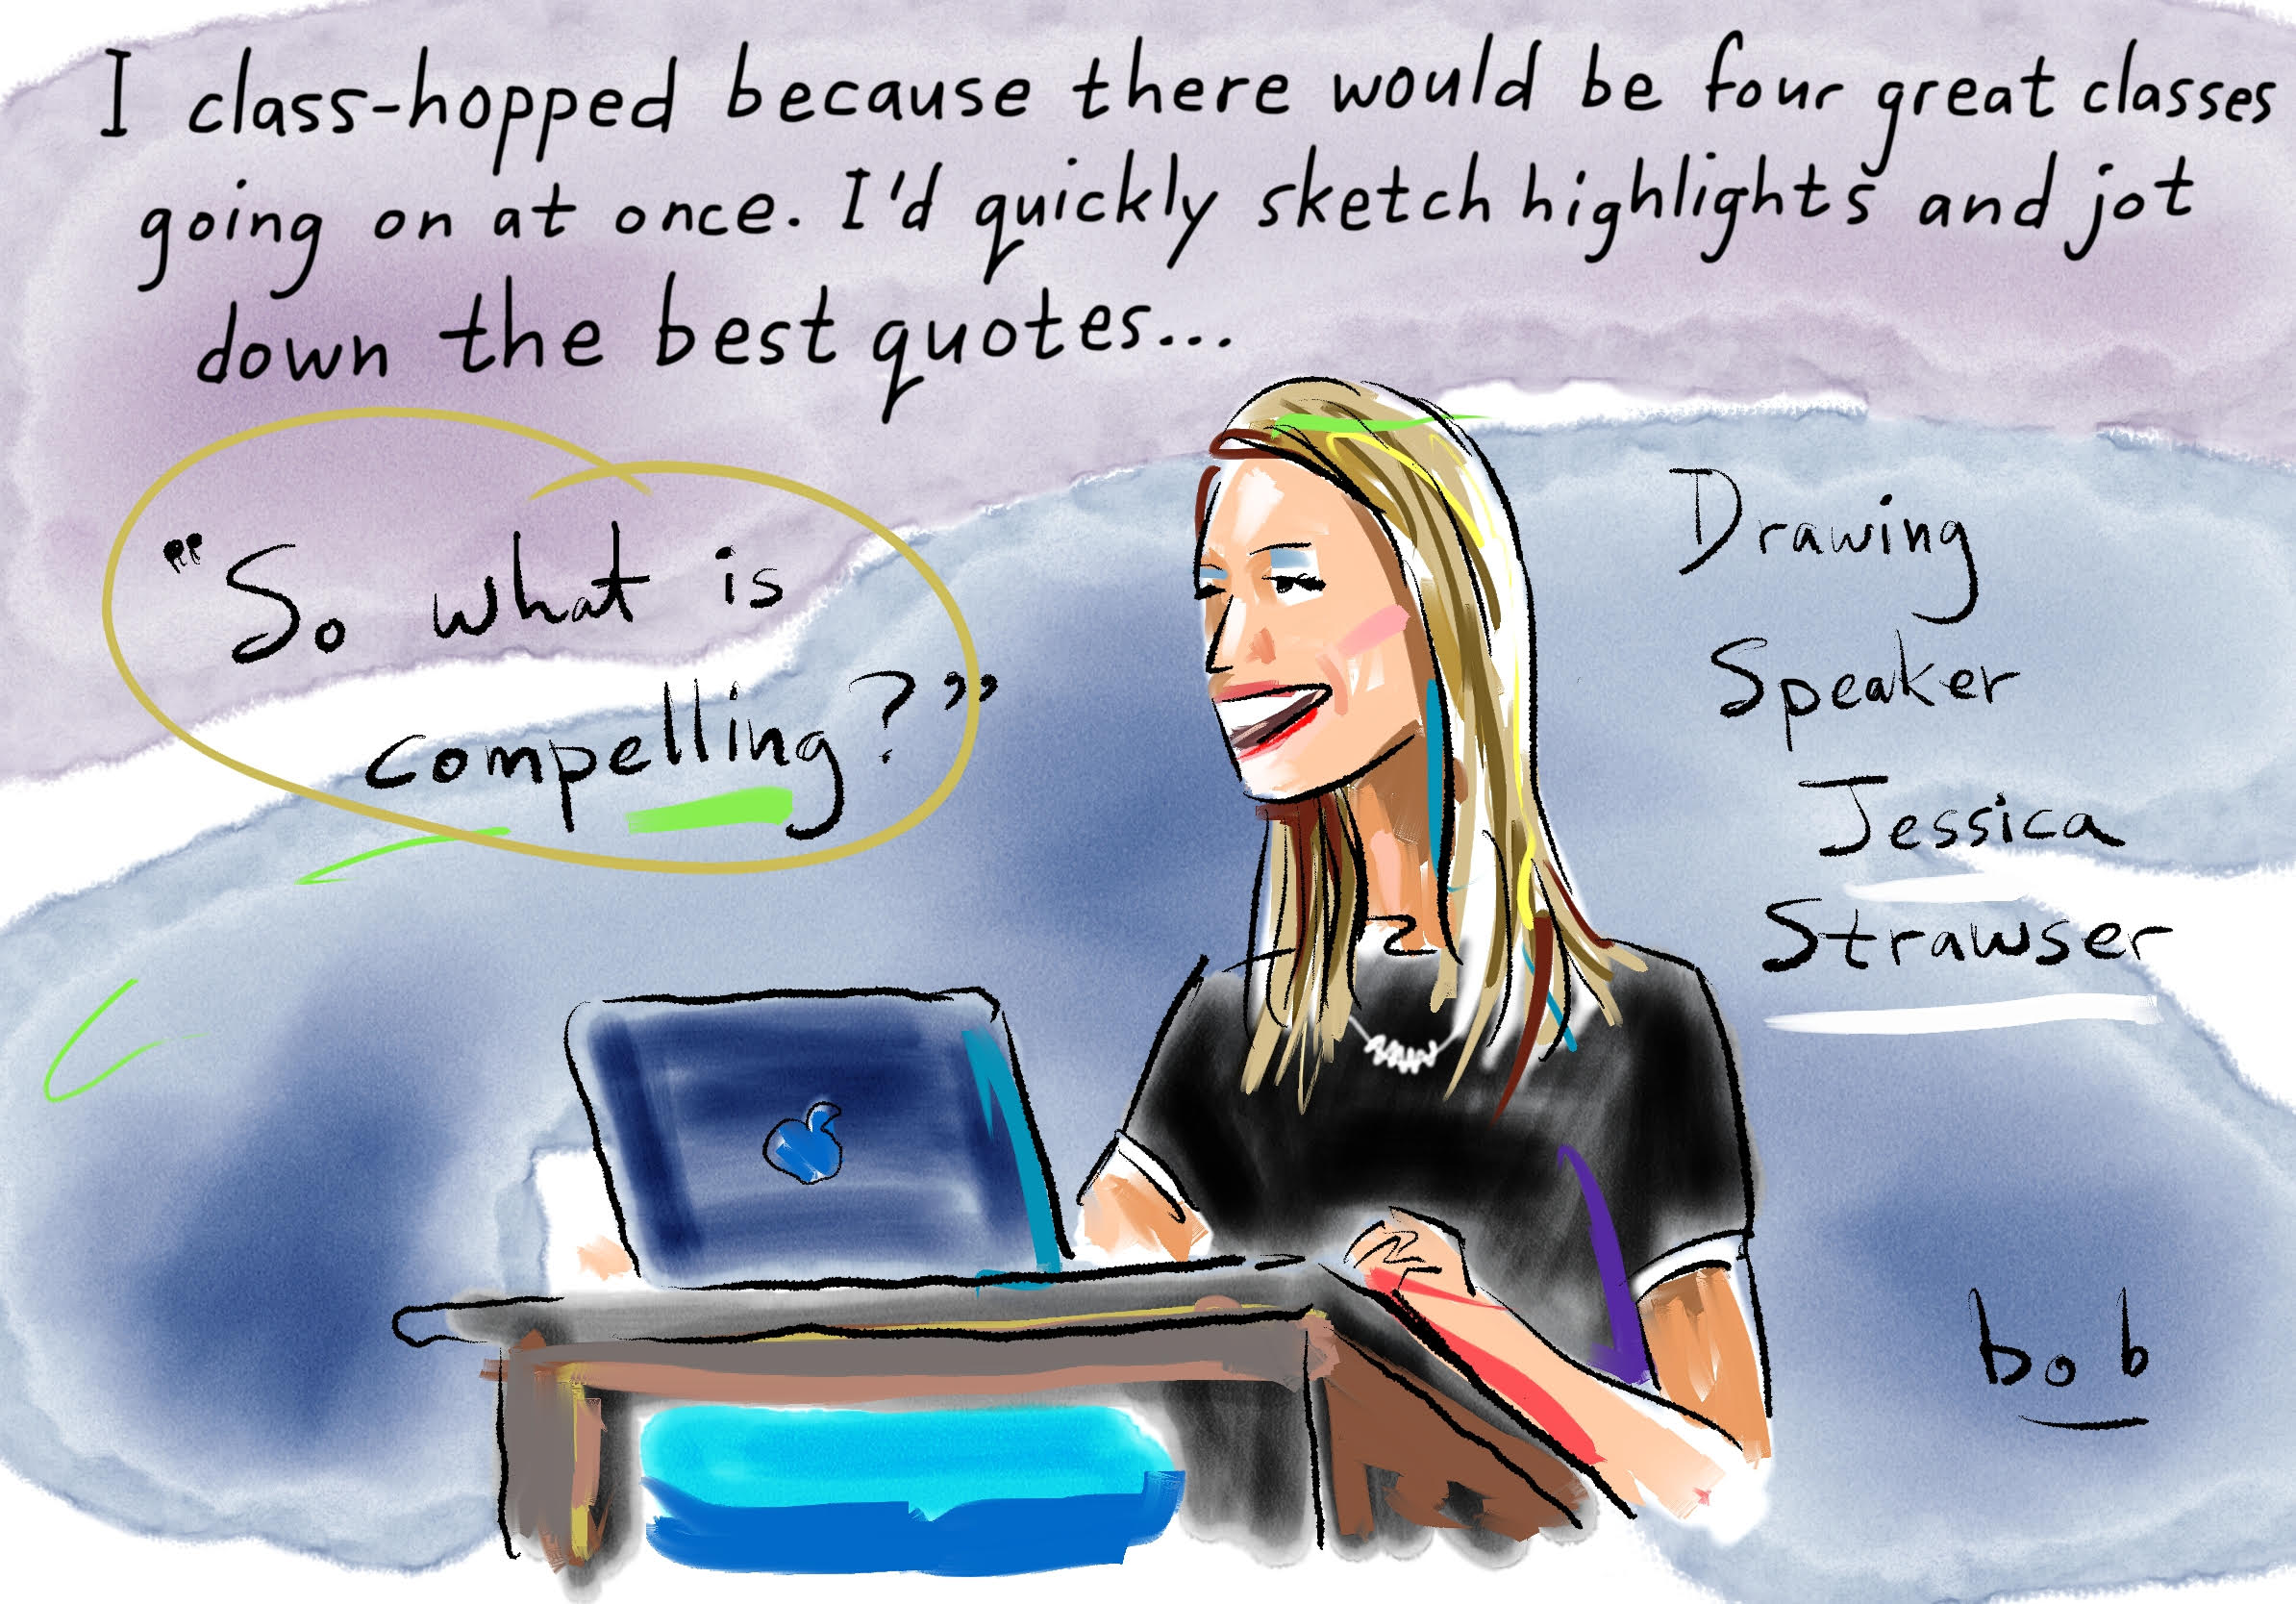 I class-hopped because there would be four great classes
going on at once. I'd quickly sketch highlights and jot
down the best quotes...
"So what is
compelling?"
Drawing
Speaker
Jessica
Strawser
bob